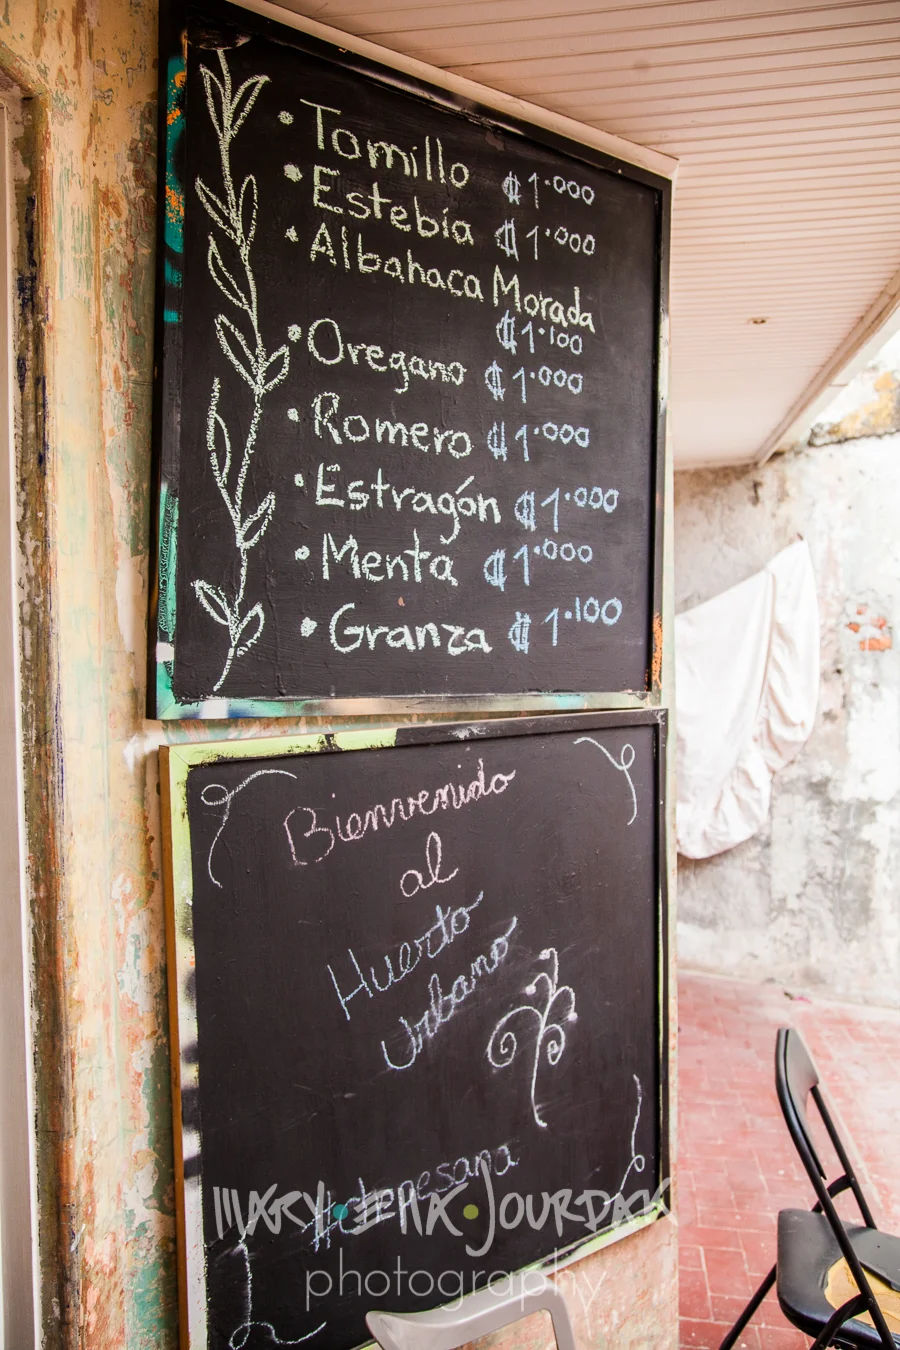 • Tomillo ₡1.000
• Estebía ₡1.000
• Albahaca Morada
₡1.100
• Oregano ₡1.000
• Romero ₡1.000
• Estragón ₡1.000
• Menta ₡1.000
• Granza ₡1.100
Bienvenido
al
Huerto
Urbano
MARY JOURDAN
photography